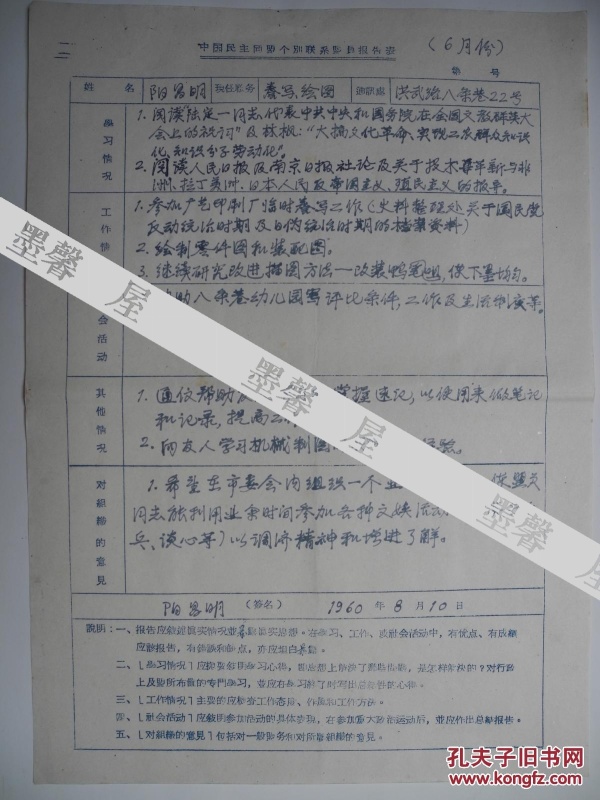 中国民主同盟个别联系盟员报告表
（6月份）
第 号
姓名 阳昌明 现任职务 摹写、绘图 通讯处 洪武路八条巷22号
學习情况
1. 阅读陆定一同志代表中共中央和国务院在全国文教群英大
会上的祝词”及林枫：“大搞文化革命，实现工农群众知识
化，知识分子劳动化”。
2. 阅读人民日报及南京日报社论及关于技术革新与非
洲、拉丁美洲、日本人民反帝国主义、殖民主义的报导。
工作情
1. 参加广艺印刷厂临时摹写工作（史料整理处关于国民党
反动统治时期及日伪统治时期的档案资料）
2. 绘制零件图和装配图。
3. 继续研究改进描图方法—改装鸭咀，使下墨均匀。
会活动
助八条巷幼儿园写评比条件，工作及生活制度等。
其他情况
1. 通仪帮助 掌握速记，以便用来做笔记
和记录，提高工
2. 向友人学习机械制图 经验。
对組織的意見
1. 希望在市委会内组织一个业 使盟员
同志能利用业余时间参加各种文娱活
兵、谈心等）以调济精神和增进了解。
阳昌明 （签名） 1960 年 8 月 10 日
說明：一、报告应敘述眞实情况並暴露眞实思想。在学习、工作、政社会活动中，有优点、有成績
应該报告，有錯誤和缺点，亦应坦白暴露。
二、〔學习情况〕应
上及盟所布置的专門学习，並应在学习終了时写出总結性的心得。
三、〔工作情况〕主要的应檢查工作态度、作風和工作方法。
四、〔社会活动〕应敘明参加活动的具体表現，在参加重大政治运动后，並应作出总結报告。
五、〔对組織的意見〕包括对一般盟务和对所屬組織的意見。
墨馨 屋
墨馨 屋
墨馨 屋
孔夫子旧书网
www.kongfz.com